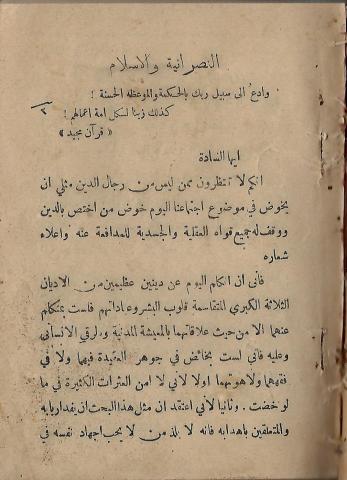 النصرانية والاسلام
وادعُ الى سبيل ربك بالحكمة والموعظه الحسنة !
كذلك زينا لسكل امة اعمالهم !
« قرآن مجيد »
٣
ايها السادة
انكم لا تنتظرون ممن ليس من رجال الدين مثلي ان
يخوض في موضوع اجتماعنا اليوم خوض من اختص بالدين
ووقف له جميع قواه العقلية والجسدية للمدافعة عنه واعلاء
شماره
فانى ان اتكلم اليوم عن دينين عظيمين من الاديان
الثلاثة الكبرى المتقاسمة قلوب البشر وعاداتهم فلست بمتكلم
عنهما الا من حيث علاقاتهما بالمعيشة المدنية والرقي الانساني
وعليه فاني لست بخائض في جوهر العقيدة فيهما ولا في
فقههما ولاهوتهما اولا لأني لا امن العثرات الكثيرة في ما
لو خضت . وثانيا لأني اعتقد ان مثل هذا البحث ان يفد اربابه
والمتعلقين باهدابه فانه لا يلذ من لا يحب اجهاد نفسه في